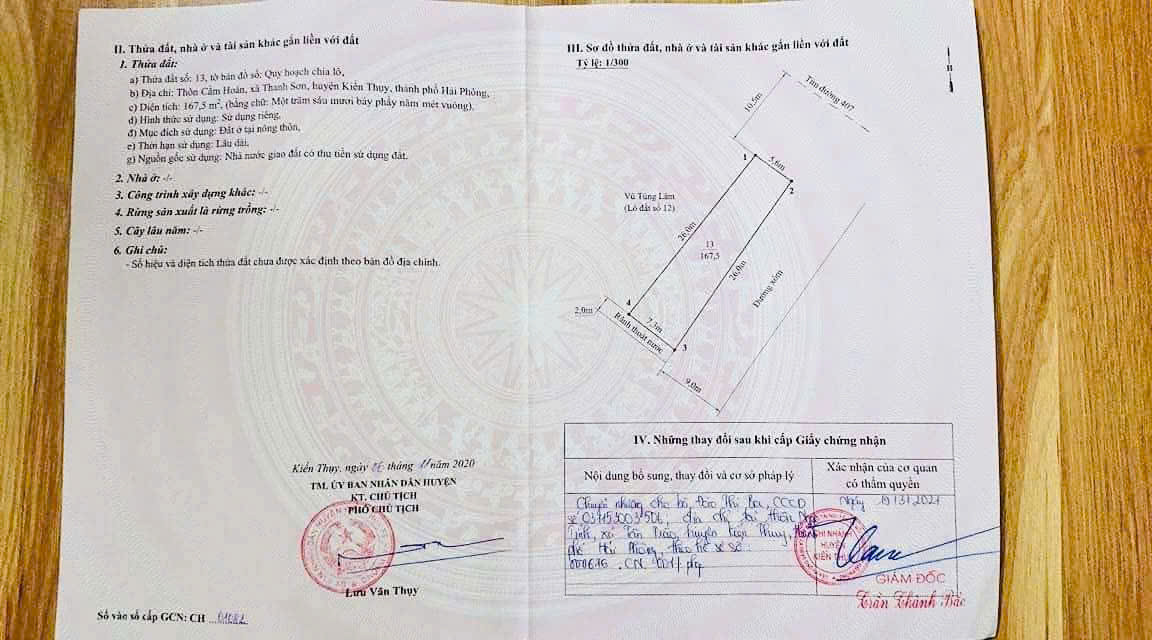 II. Thửa đất, nhà ở và tài sản khác gắn liền với đất
1. Thửa đất:
a) Thửa đất số: 13, tờ bản đồ số: Quy hoạch chia lô,
b) Địa chỉ: Thôn Cẩm Hoàn, xã Thanh Sơn, huyện Kiến Thụy, thành phố Hải Phòng,
c) Diện tích: 167,5 m², (bằng chữ: Một trăm sáu mươi bảy phẩy năm mét vuông),
d) Hình thức sử dụng: Sử dụng riêng,
đ) Mục đích sử dụng: Đất ở tại nông thôn,
e) Thời hạn sử dụng: Lâu dài,
g) Nguồn gốc sử dụng: Nhà nước giao đất có thu tiền sử dụng đất.
2. Nhà ở: -/-
3. Công trình xây dựng khác: -/-
4. Rừng sản xuất là rừng trồng: -/-
5. Cây lâu năm: -/-
6. Ghi chú:
- Số hiệu và diện tích thửa đất chưa được xác định theo bản đồ địa chính.
Kiến Thụy, ngày 06 tháng 11 năm 2020
TM. ỦY BAN NHÂN DÂN HUYỆN
KT. CHỦ TỊCH
PHÓ CHỦ TỊCH
Lưu Văn Thụy
Số vào sổ cấp GCN: CH 01082
III. Sơ đồ thửa đất, nhà ở và tài sản khác gắn liền với đất
Tỷ lệ: 1/300
B
Tim đường 407
10,5m
1
5,6m
2
Vũ Tùng Lâm
(Lô đất số 12)
26,0m
13
167,5
26,0m
Đường xóm
4
2,0m
7,3m
Rãnh thoát nước
3
9,0m
IV. Những thay đổi sau khi cấp Giấy chứng nhận
Nội dung bổ sung, thay đổi và cơ sở pháp lý
Xác nhận của cơ quan
có thẩm quyền
Chuyển nhượng cho bà Đào Thị CCCD
Ngày 19/3/2021
số địa chỉ tại thôn
xã huyện thành
phố Hải Phòng, theo hồ sơ số
000616.CN.001
CHI NHÁNH
HUYỆN
KIẾN THỤY
GIÁM ĐỐC
Trần Thành Bắc